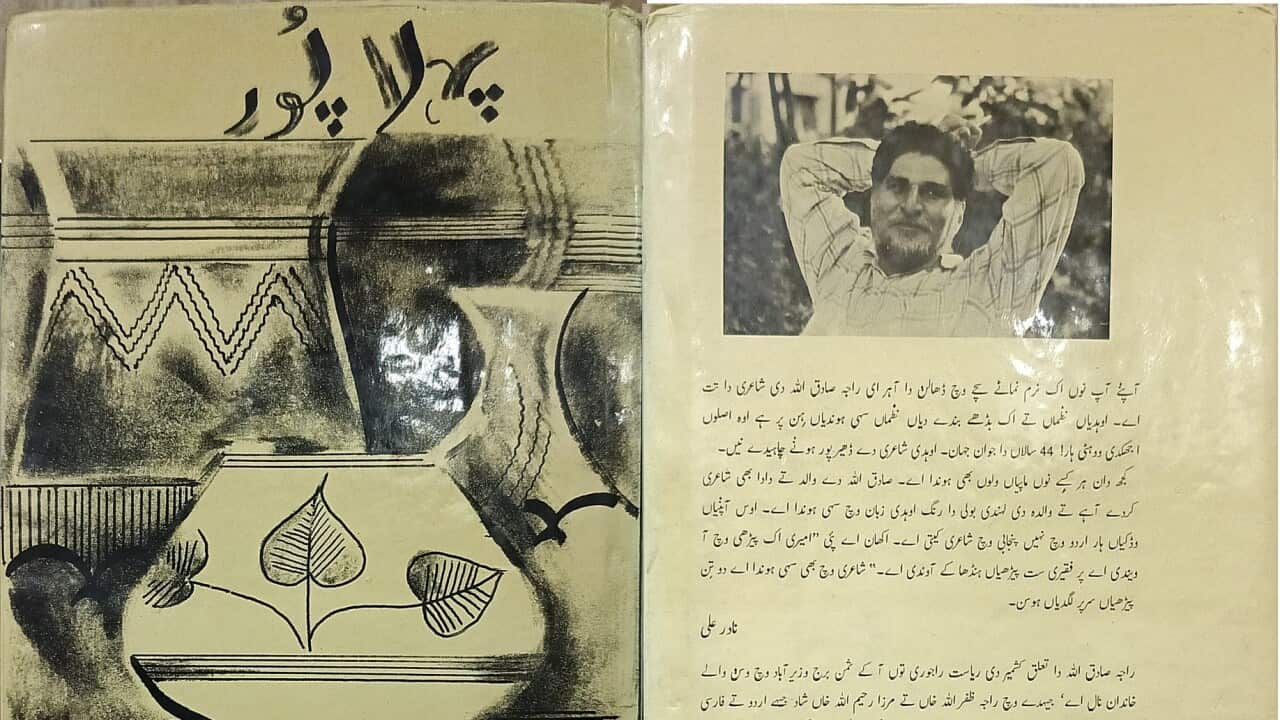 پہلا پُور
آپنے آپ نوں اک نرم نمانے سچے وچ ڈھالن دا آہر ای راجہ صادق اللہ دی شاعری دا تت
اے۔ اوہدیاں نظماں تے اک بڈھے بندے دیاں نظماں سی ہوندیاں ہن پر ہے اوہ اصلوں
اجھکدی ووہٹی ہار! 44 سالاں دا جوان جہان۔ اوہدی شاعری دے ڈھیر پور ہونے چاہیدے نیں۔
کجھ دان ہر کسے نوں ماپیاں ولوں بھی ہوندا اے۔ صادق اللہ دے والد تے دادا بھی شاعری
کردے آہے تے والدہ دی لہندی بولی دا رنگ اوہدی زبان وچ سہی ہوندا اے۔ اوس آپنیاں
وڈکیاں ہار اردو وچ نہیں پنجابی وچ شاعری کیتی اے۔ اکھان اے پئی ”امیری اک پیڑھی وچ آ
ویندی اے پر فقیری ست پیڑھیاں ہنڈھا کے آوندی اے۔“ شاعری وچ بھی سہی ہوندا اے دو تن
پیڑھیاں سرپر لگدیاں ہوسن۔
نادر علی
راجہ صادق اللہ دا تعلق کشمیر دی ریاست راجوری توں آ کے ثمن برج وزیر آباد وچ وسن والے
خاندان نال اے‘ جیہدے وچ راجہ ظفر اللہ خاں تے مرزا رحیم اللہ خاں شاد جیسے اردو تے فارسی